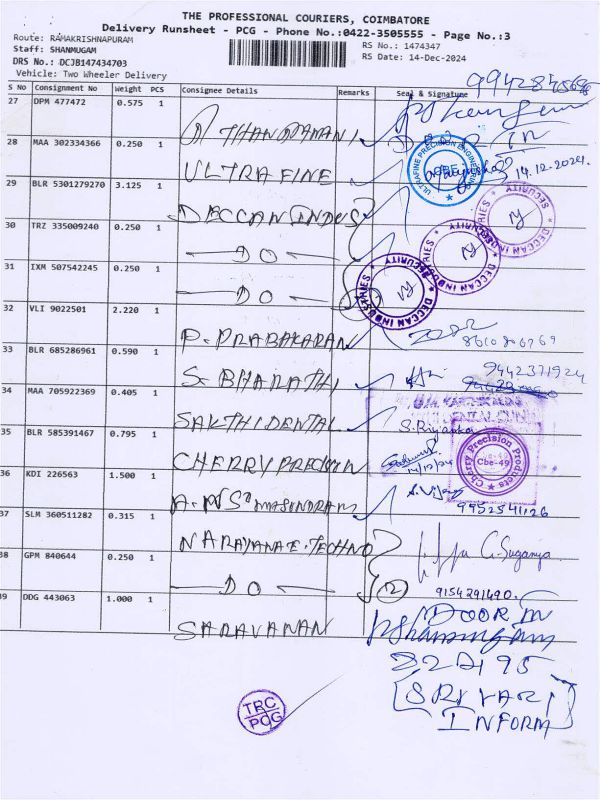 THE PROFESSIONAL COURIERS, COIMBATORE
Delivery Runsheet - PCG - Phone No.:0422-3505555 - Page No.:3
Route: RAMAKRISHNAPURAM
Staff: SHANMUGAM
DRS No.: DCJB147434703
Vehicle: Two Wheeler Delivery
RS No.: 1474347
RS Date: 14-Dec-2024
S No Consignment No Weight PCS Consignee Details Remarks Seal & Signature
27 DPM 477472 0.575 1
28 MAA 302334366 0.250 1 ULTRA FINE
ULTRAFINE PRECISION ENGINEERING
14.12.2024
29 BLR 5301279270 3.125 1 DECCAN INDUS
DECCAN INDUSTRIES SECURITY
30 TRZ 335009240 0.250 1 DO
DECCAN INDUSTRIES SECURITY
31 IXM 507542245 0.250 1 DO
DECCAN INDUSTRIES SECURITY
32 VLI 9022501 2.220 1 P. PRABAKARAN
33 BLR 685286961 0.590 1 S. BHARATHI
9442371924
34 MAA 705922369 0.405 1 SAKTHI DENTAL
S. Priyanka
35 BLR 585391467 0.795 1 CHERRY PRECISION
14/12/24
Cherry Precision Products
Cbe-49
36 KDI 226563 1.500 1
37 SLM 360511282 0.315 1 NARAYANA E-TECHNO
G. Suganya
38 GPM 840644 0.250 1 DO 2
9154291490
39 DDG 443063 1.000 1 SARAVANAN
DOOR IN
INFORM
TRC
PCG